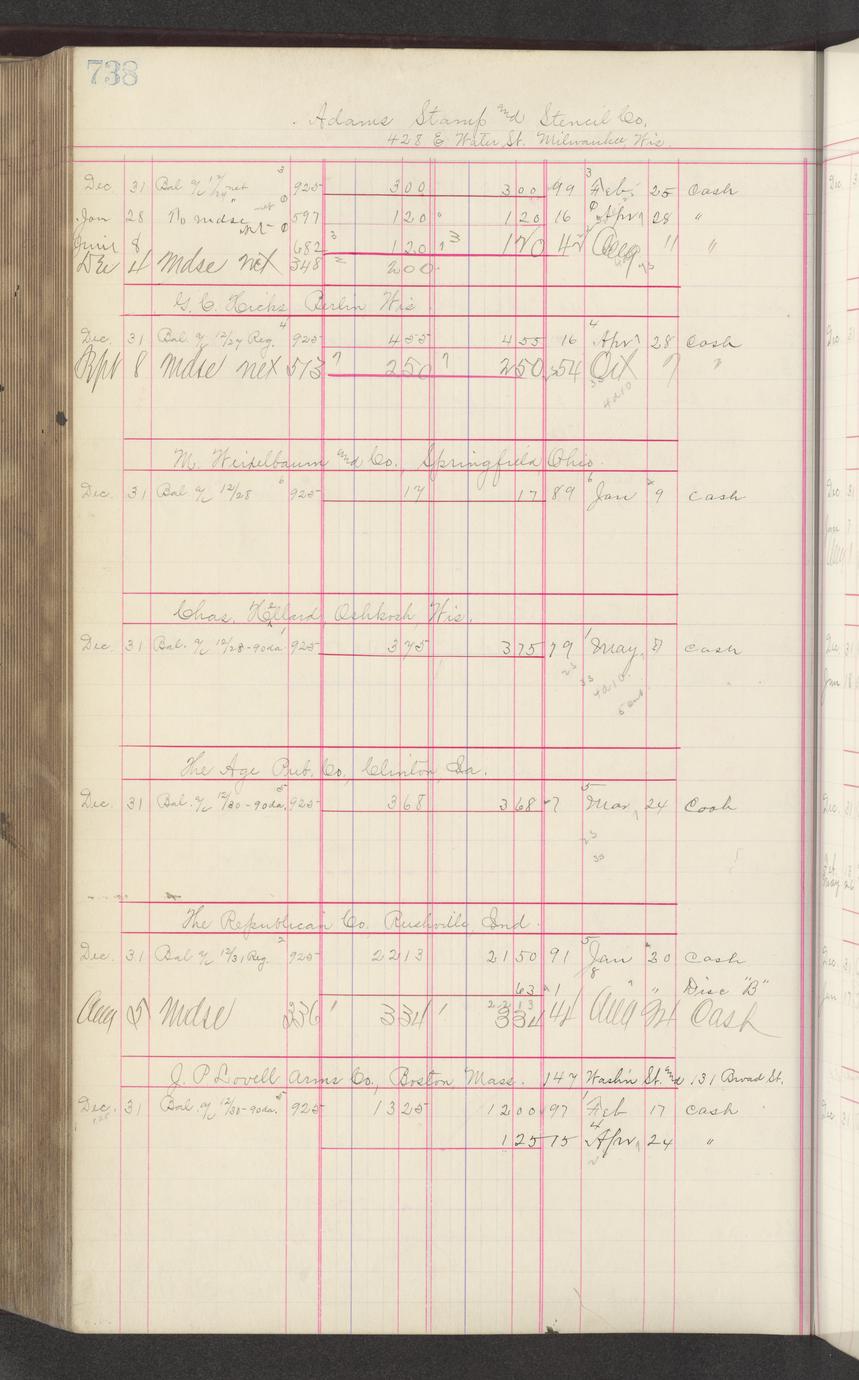 738
Adams Stamp and Stencil Co.
428 E Water St. Milwaukee, Wis.
Dec. 31 Bal a/c net 3 925 300 300 99 3 Feb. 25 Cash
Jan 28 To mdse net 597 120 120 16 Apr 28 "
June 8 net 682 3 120 3 120 42 Aug 11 "
Dec 4 Mdse net 348 200
G. C. Hicks Berlin Wis
Dec. 31 Bal. a/c 12/27 Reg. 4 925 455 455 16 4 Apr 28 Cash
Sept 8 Mdse net 513 7 250 7 250 54 Oct 7 "
M. Weixelbaum and Co., Springfield Ohio.
Dec. 31 Bal a/c 12/28 6 925 17 17 89 6 Jan 9 Cash
Chas. Oshkosh, Wis.
Dec. 31 Bal. a/c 12/28-90da 1 925 375 375 79 1 May 8 Cash
23 33
The Age Pub. Co., Clinton, Ia.
Dec. 31 Bal. a/c 12/30-90da. 5 925 368 368 7 5 Mar 24 Cash
23
33
The Republican Co. Rushville Ind.
Dec. 31 Bal a/c 12/31 Reg. 2 925 2213 2150 91 5 Jan 30 Cash
63 91 8 " " Disc "B"
2213
Aug 5 Mdse 236 1 334 1 334 44 Aug 24 Cash
J. P. Lovell Arms Co., Boston, Mass. 147 Wash'n St. and 131 Broad St.
Dec. 31 Bal. a/c 12/30-90da. 5 925 1325 1200 97 1 Feb 17 Cash
125 75 4 Apr 24 "